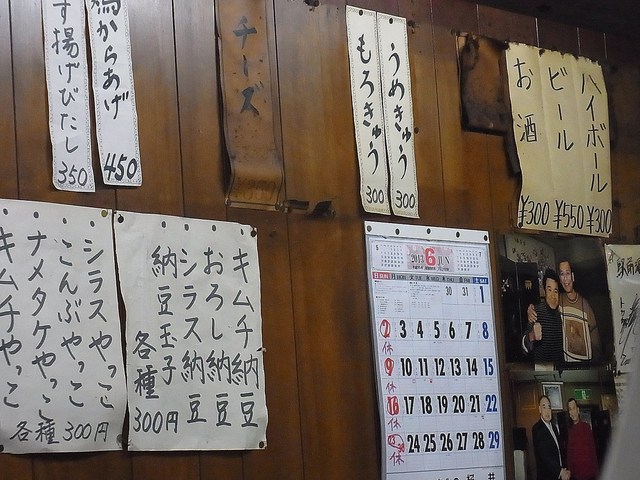 す揚げびたし 350
鶏からあげ 450
チーズ
もろきゅう 300
うめきゅう 300
ハイボール ¥300
ビール ¥550
お酒 ¥300
シラスやっこ
こんぶやっこ
ナメタケやっこ
キムチやっこ
各種300円
キムチ納豆
おろし納豆
シラス納豆
納豆玉子
各種300円
2013 6 JUN
30 31 1
2 3 4 5 6 7 8
休
9 10 11 12 13 14 15
休
16 17 18 19 20 21 22
休
24 25 26 27 28 29
休